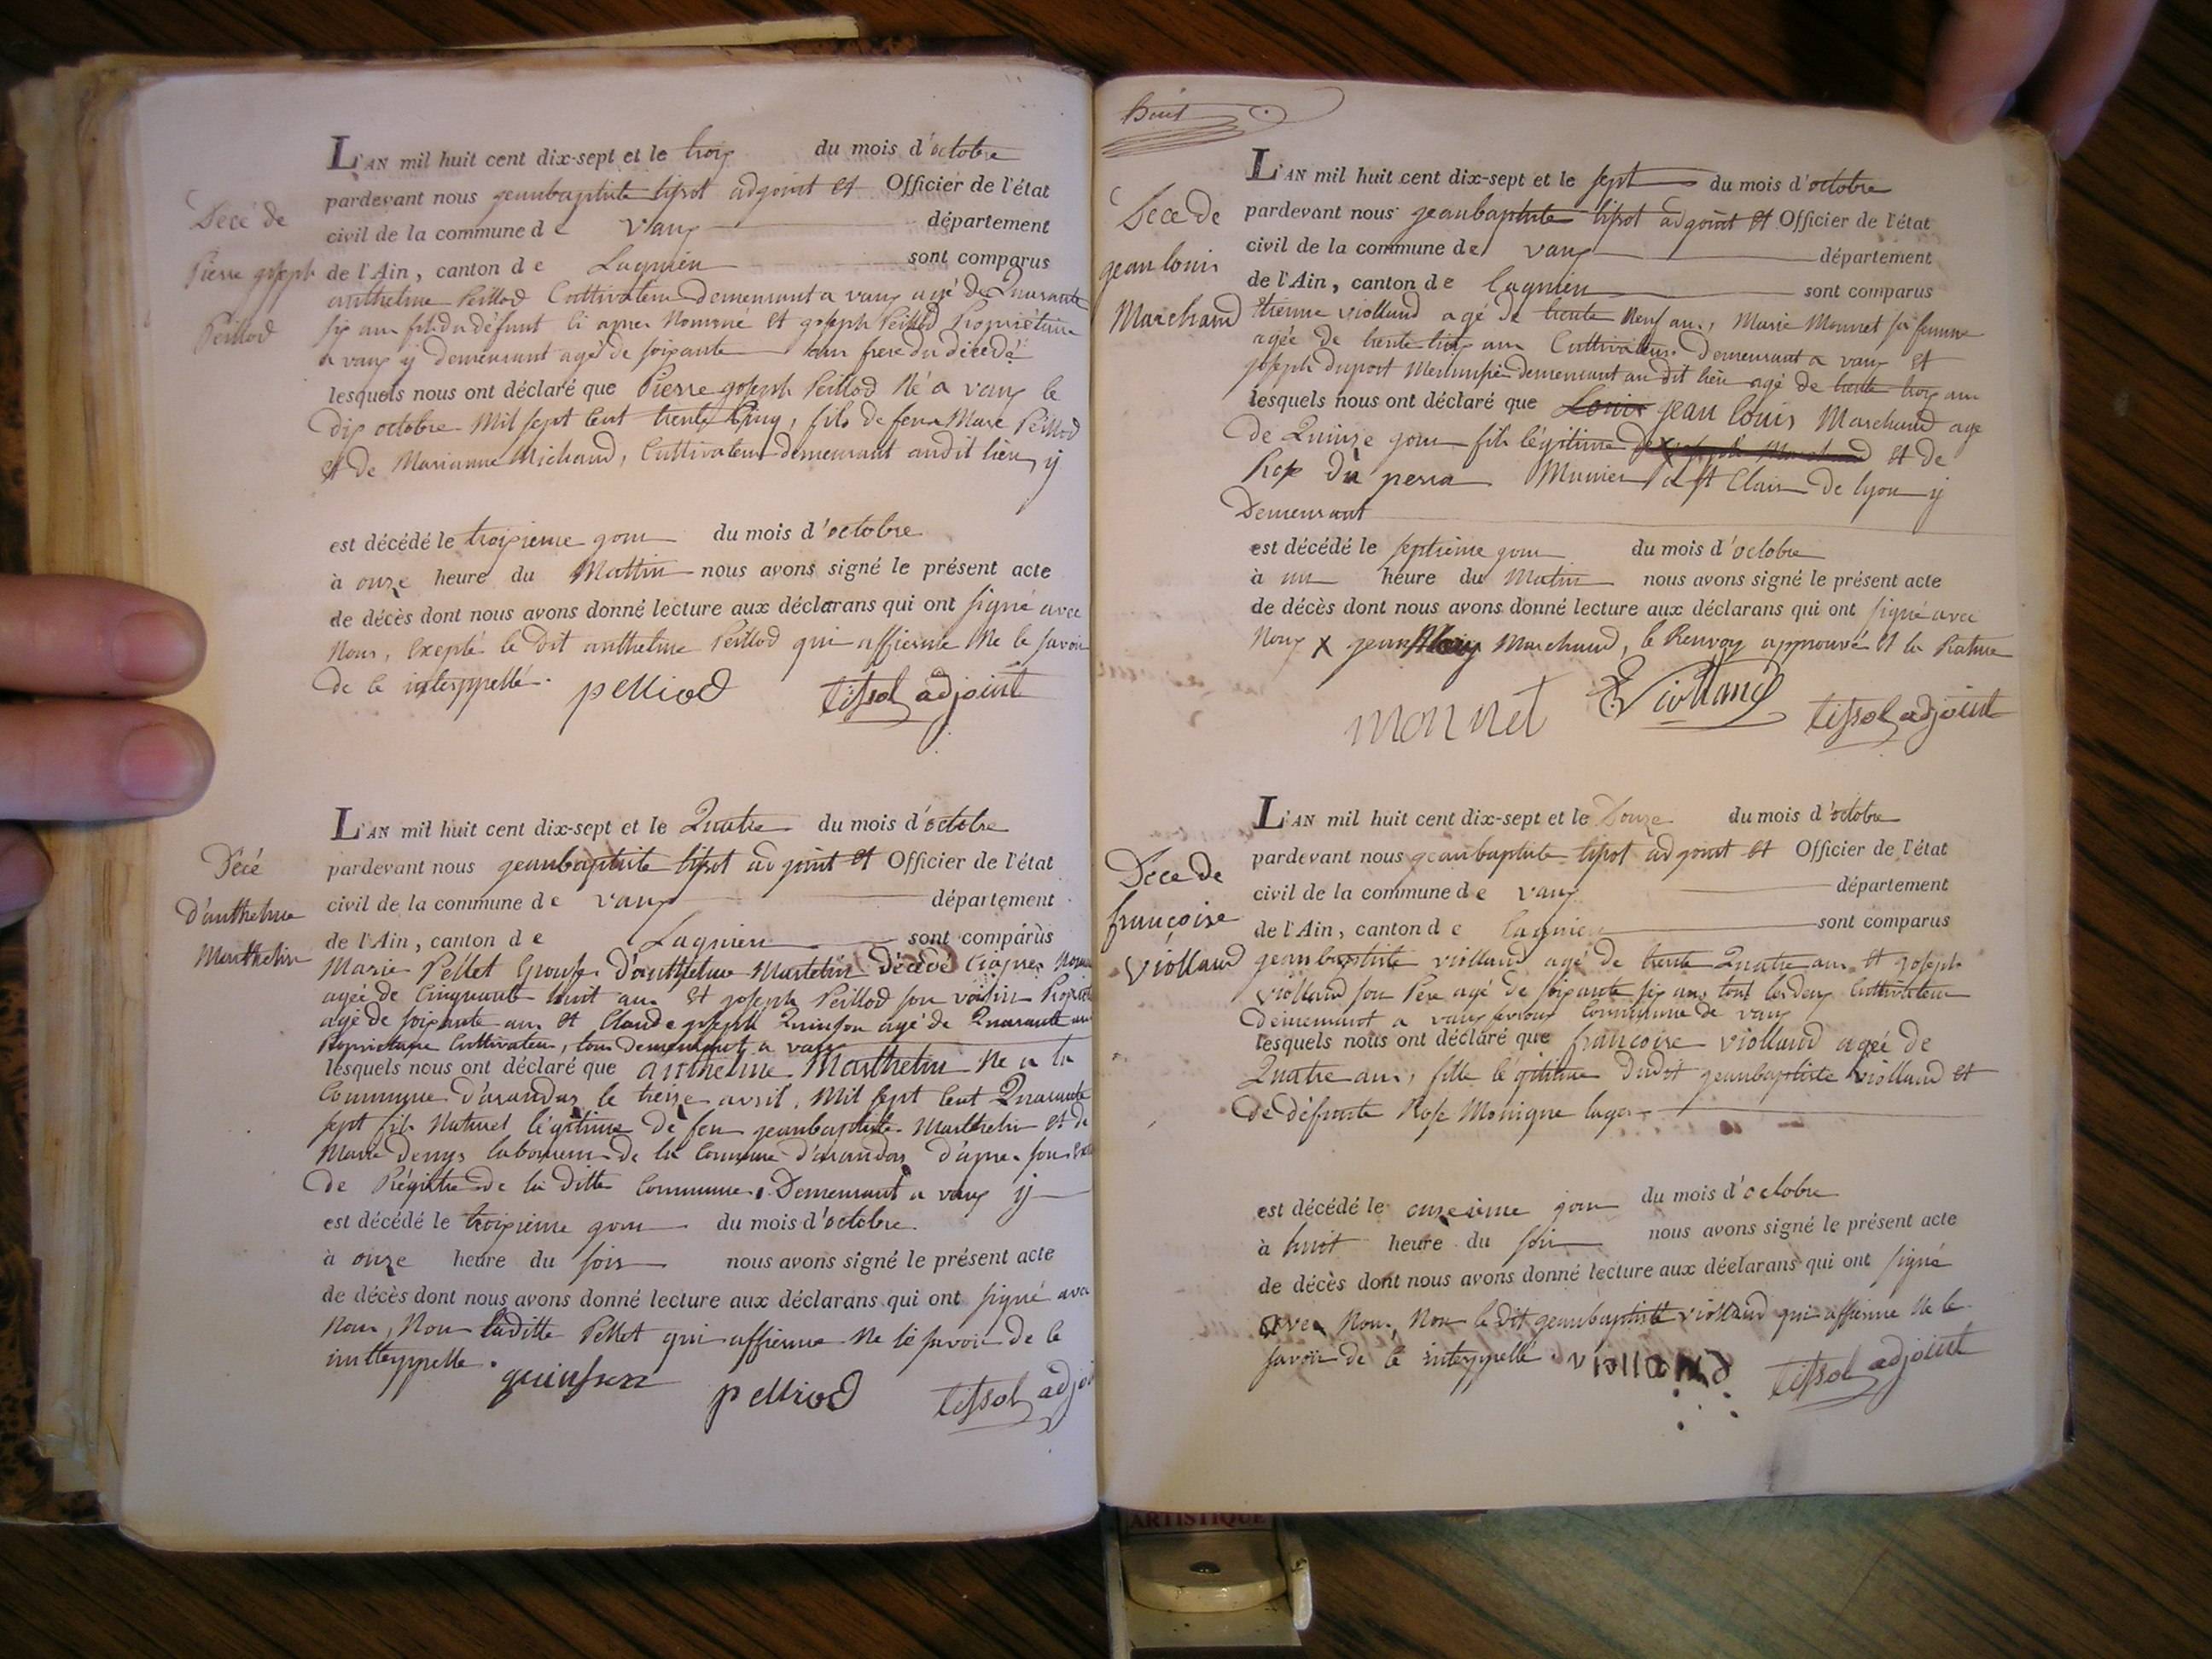 Décé de
Pierre goseph
Peillod
L'AN mil huit cent dix-sept et le trois du mois d'octobre
pardevant nous geanbaptiste tissot adgoint et Officier de l'état
civil de la commune de vaux département
de l'Ain, canton de Lagnieu sont comparus
anthelme Peillod Cultivateur demeurant a vaux agé de Quarante
six ans fils du défunt ci apres Nommé et goseph Peillod Propriétaire
a vaux y demeurant agé de soixante ans frere du décédé
lesquels nous ont déclaré que Pierre goseph Peillod Né a vaux le
dix octobre Mil sept cent trente cinq, fils de feu Marc Peillod
et de Marianne Michaud, Cultivateur demeurant audit lieu y
est décédé le troisieme gour du mois d'octobre
à onze heure du Mattin nous avons signé le présent acte
de décès dont nous avons donné lecture aux déclarans qui ont signé avec
Nous, Excepté le dit anthelme Peillod qui affierme Ne le savoir
de ce interppellé.
pelliod tissot adjoint
Décé
d'anthelme
Marthelin
L'AN mil huit cent dix-sept et le Quatre du mois d'octobre
pardevant nous geanbaptiste tissot adgoint et Officier de l'état
civil de la commune de vaux département
de l'Ain, canton de Lagnieu sont comparus
Marie Pellet Epouse d'anthelme Martelin décédé ciapres
agée de Cinquante huit ans et goseph Peillod son voisin
agé de soixante ans et Claude goseph Quinson agé de Quarante
Proprietaire Cultivateur, tous demeurant a vaux
lesquels nous ont déclaré que anthelme Marthelin Né a la
Commune d'arandas le treize avril, Mil sept cent Quarante
sept fils Naturel légitime de feu geanbaptiste Marthelin et de
Marie denys laboureur de la Commune d'arandas d'apres son
de Régistre de la ditte Commune. Demeurant a vaux y
est décédé le troisieme gour du mois d'octobre
à onze heure du soir nous avons signé le présent acte
de décès dont nous avons donné lecture aux déclarans qui ont signé avec
Nous, Non laditte Pellet qui affierme Ne le savoir de ce
intterppelle.
quinson pelliod tissot
huit
Dece de
gean louis
Marchand
L'AN mil huit cent dix-sept et le sept du mois d'octobre
pardevant nous geanbaptiste tissot adgoint et Officier de l'état
civil de la commune de vaux département
de l'Ain, canton de lagnieu sont comparus
etienne violland agé de trente Neuf ans, Marie Monnet sa femme
agée de trente cinq ans Cultivateurs demeurant a vaux et
goseph duport demeurant au dit lieu agé de trente trois ans
lesquels nous ont déclaré que Louis gean louis Marchand age
de Quinze gour fils légitime de X et de
Rose du perra Munier a st Clair de lyon y
Demeurant
est décédé le septieme gour du mois d'octobre
à un heure du Matin nous avons signé le présent acte
de décès dont nous avons donné lecture aux déclarans qui ont signé avec
Nous X gean Marchand, le Renvoy approuvé et la Rature
monnet E Violland tissot adjoint
Dece de
françoise
violland
L'AN mil huit cent dix-sept et le Douze du mois d'octobre
pardevant nous geanbaptiste tissot adgoint et Officier de l'état
civil de la commune de vaux département
de l'Ain, canton de lagnieu sont comparus
geanbaptiste violland agé de trente Quatre ans et goseph
violland son Pere agé de soixante six ans tous les deux Cultivateur
demeurant a vaux Commune de vaux
lesquels nous ont déclaré que françoise violland agée de
Quatre ans, fille légitime dudit geanbaptiste violland et
de défunte Rose Monique
est décédé le onzeieme gour du mois d'octobre
à huit heure du soir nous avons signé le présent acte
de décès dont nous avons donné lecture aux déclarans qui ont signé
avec Nous, Non le dit geanbaptiste violland qui affierme Ne le
savoir de ce interppellé. violland tissot adjoint
ARTISTIQUE